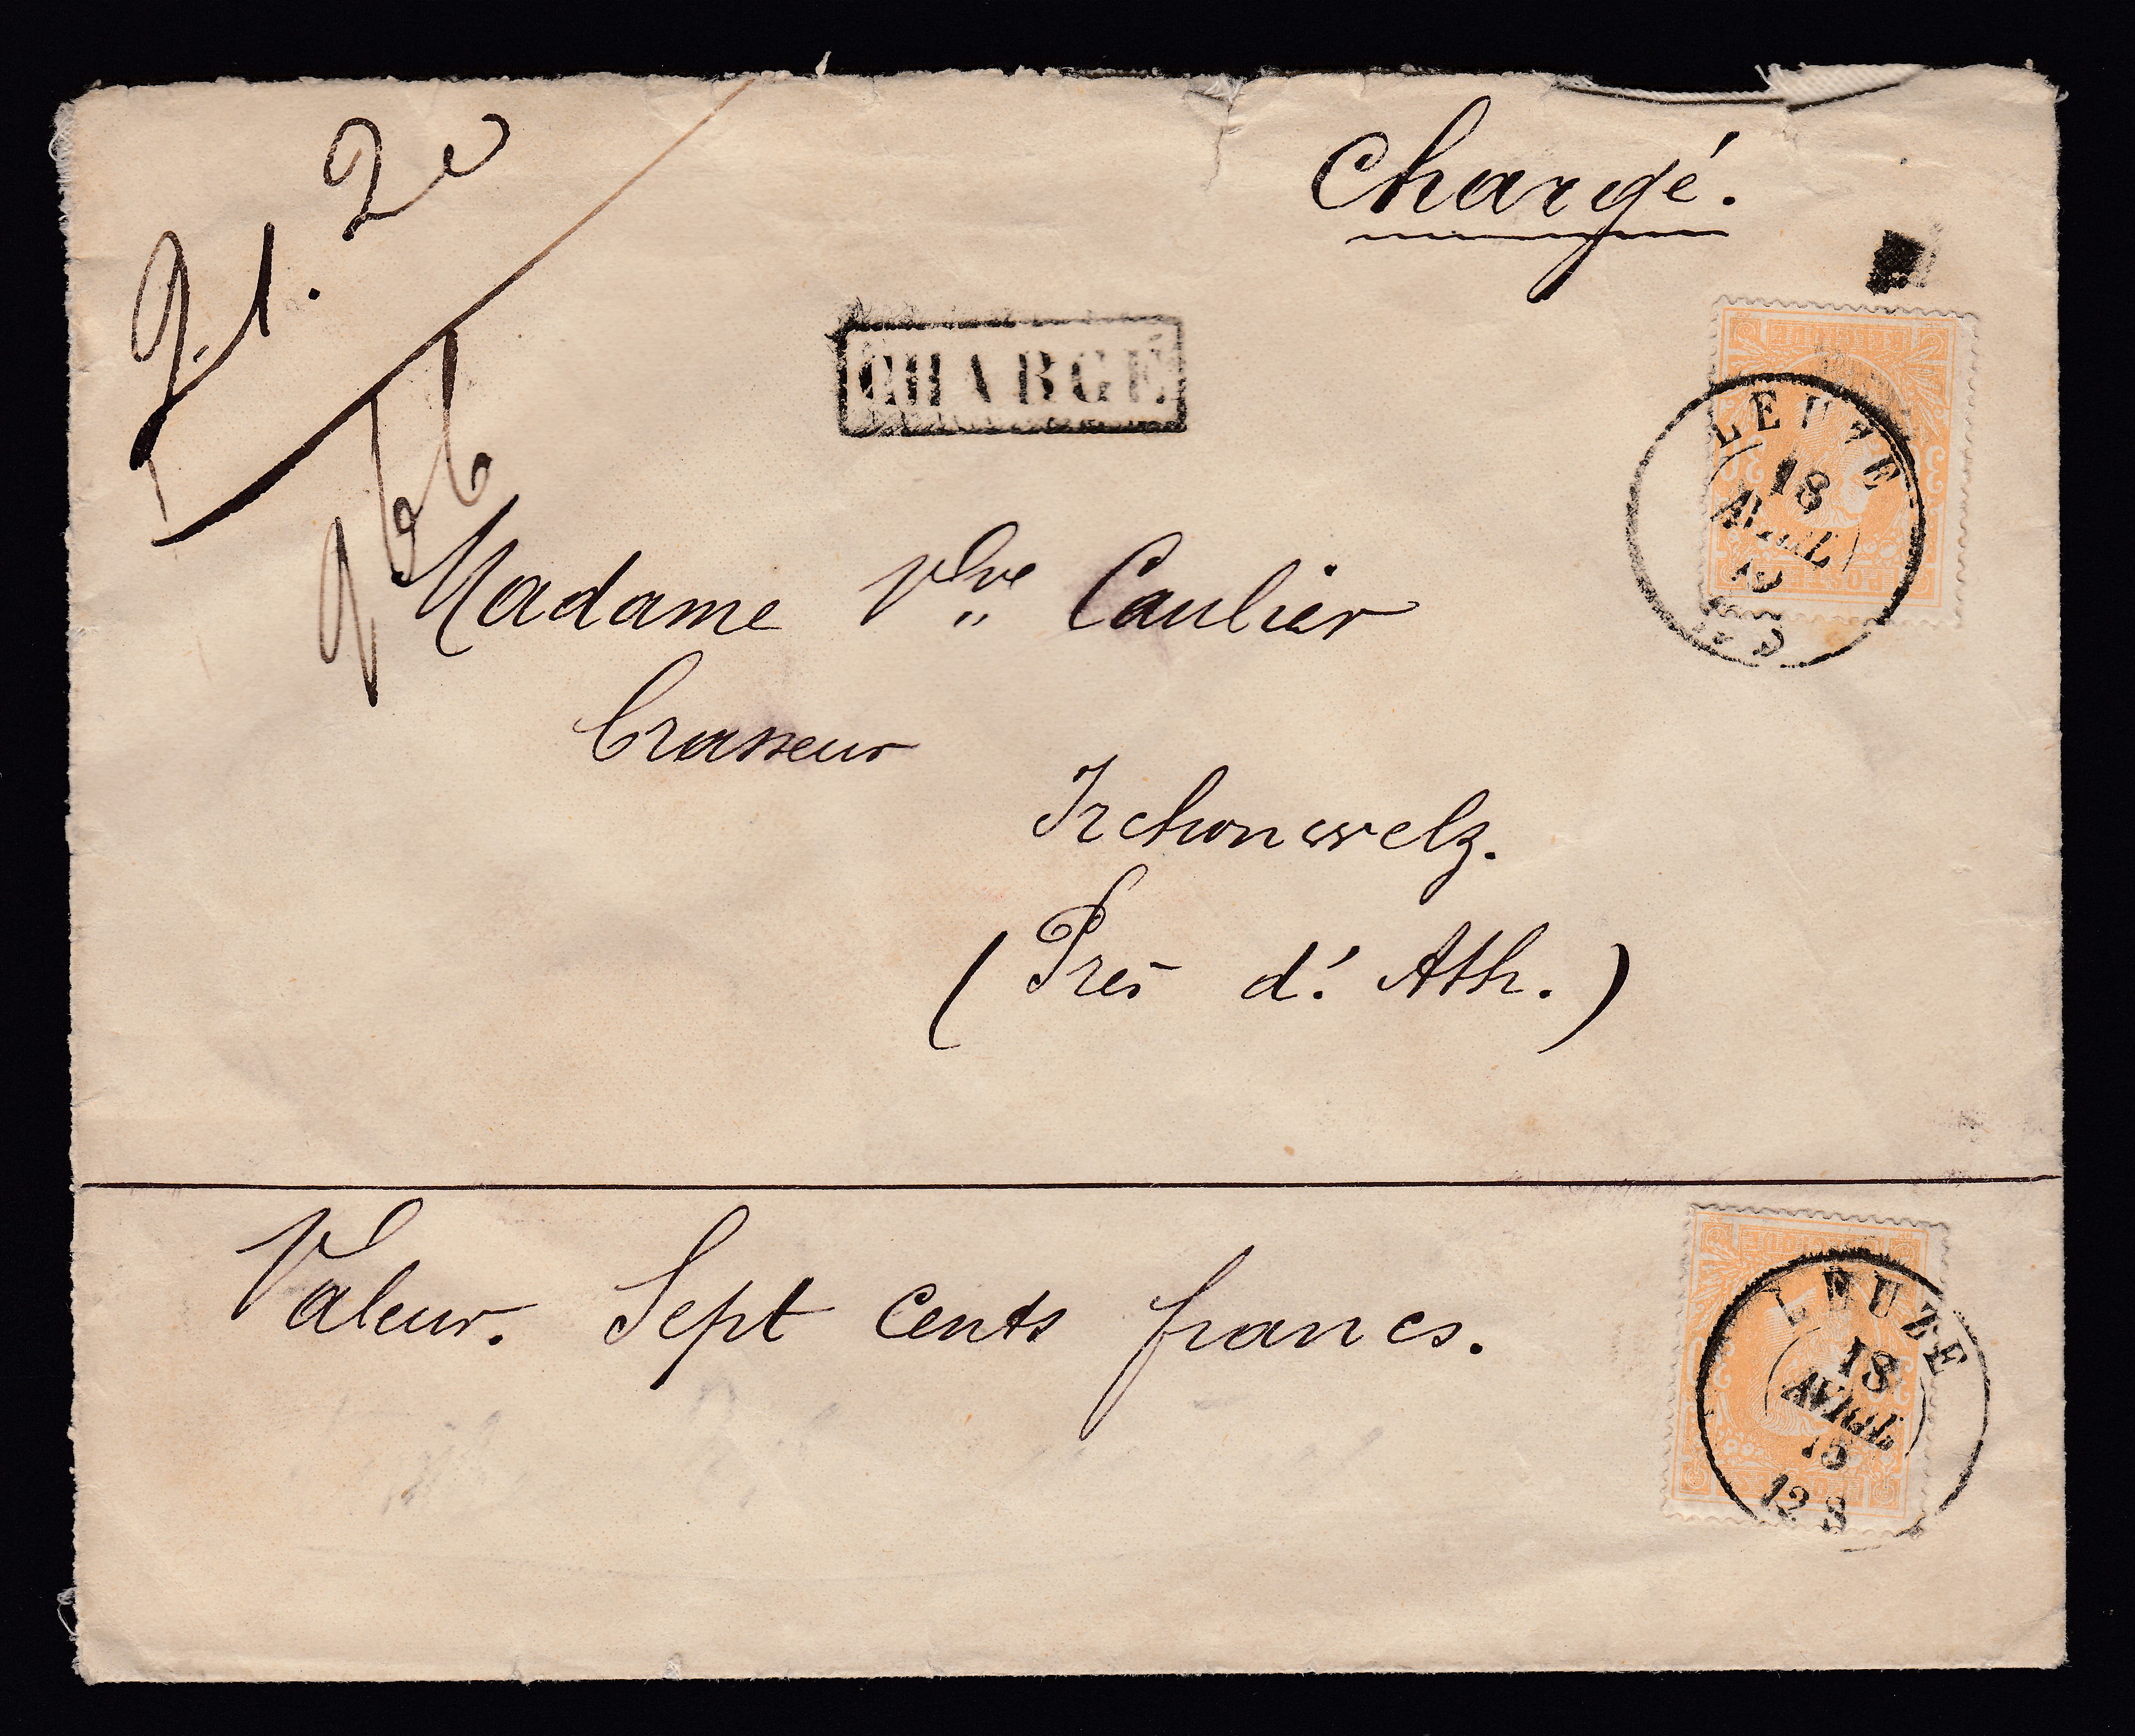 Chargé.
21. 20
CHARGÉ
LEUZE
18
AVRIL
Madame Vve Caulier
brasseur
Irchonwelz.
(Près d'. Ath.)
Valeur. Sept Cents francs.
LEUZE
18
AVRIL
75
12 S